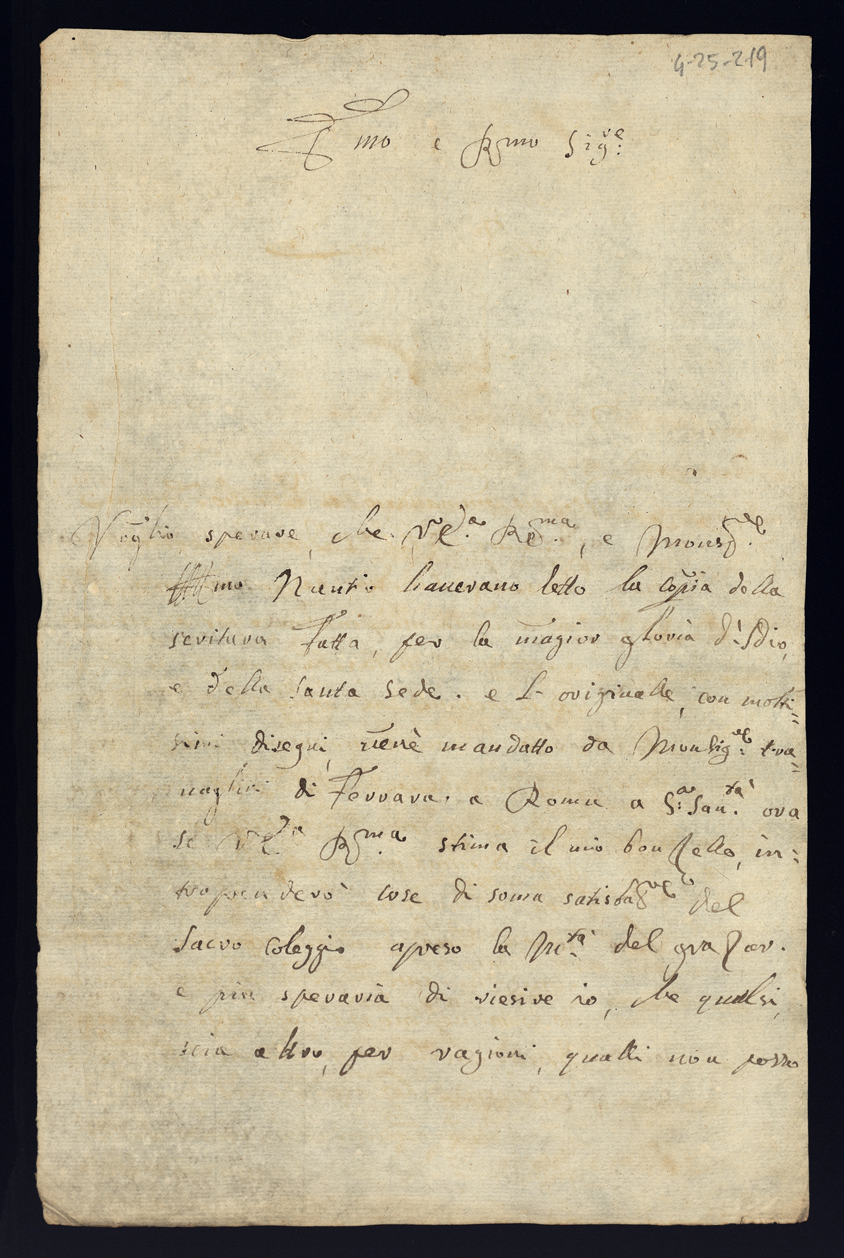 4-25-219
Illmo e Rmo Sigre:
Voglio sperare, che V.Ecca. Rma., e Monsgre.
Illmo Nuntio haverano letto la copia della
scritura fatta, per la magior gloria d'Idio,
e della Santa Sede. e l'originalle, con molti=
simi disegni, viene mandatto da Monsigre: tra=
naglini di Ferrara. a Roma a Sa: Santà. ora
se V.Ecca Rma. stima il mio bon Zello, in=
traprenderò cose di soma satisfane del
Sacro Coleggio apreso la Mtà: del gra Zar.
e piu sperarià di riesire io, che qualsi,
scia altro, per ragioni, qualli non posso